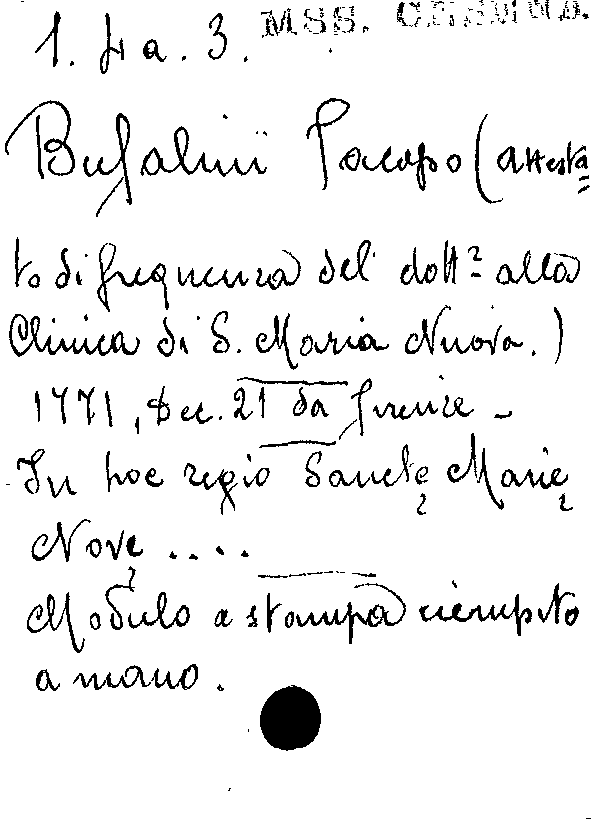 MSS.
1. 4 a. 3.
Bufalini Jacopo (attesta=
to di frequenza del dott? alla
Clinica di S. Maria Nuova.)
1771, Dec. 21 da Firenze -
In hoc regio Sanctę Marię
Novę ....
Modulo a stampa riempito
a mano.